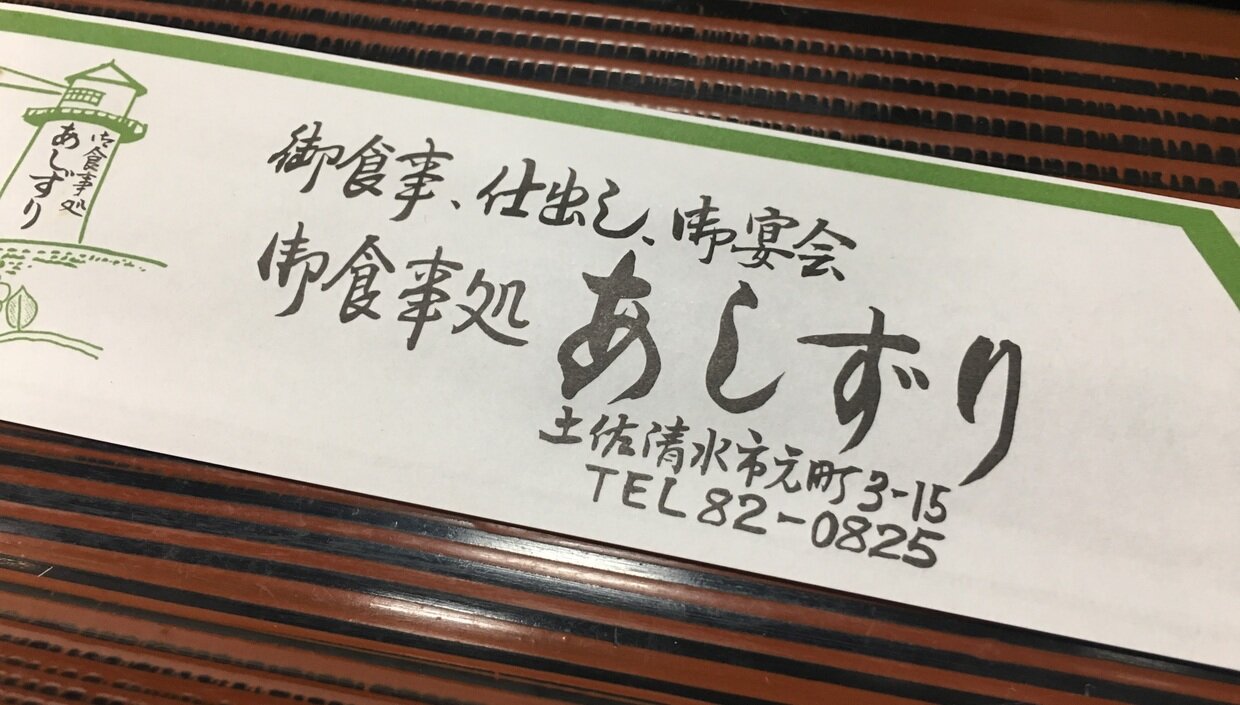 御食事処
あしずり
御食事、仕出し、御宴会
御食事処 あしずり
土佐清水市元町3-15
TEL 82-0825